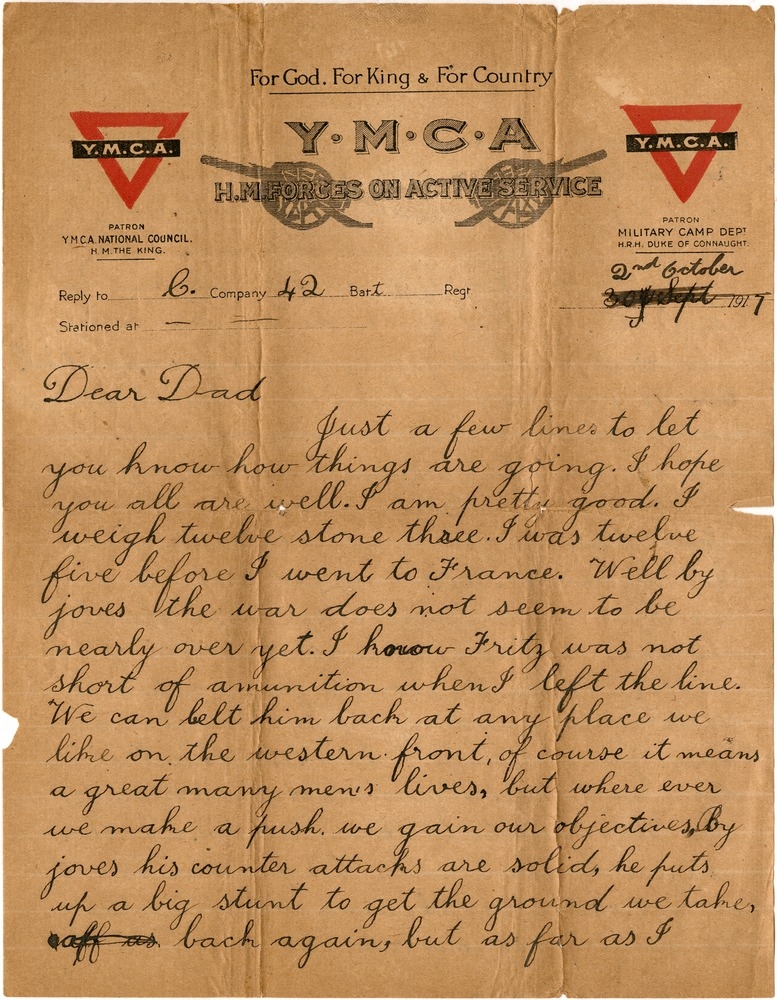 For God. For King & For Country
Y·M·C·A
H.M. FORCES ON ACTIVE SERVICE
Y.M.C.A.
PATRON
Y.M.C.A. NATIONAL COUNCIL.
H.M. THE KING.
Y.M.C.A.
PATRON
MILITARY CAMP DEPT
H.R.H. DUKE OF CONNAUGHT.
2nd October
30th Sept 1917
Reply to C. Company 42 Batt Regt.
Stationed at —
Dear Dad
Just a few lines to let
you know how things are going. I hope
you all are well. I am pretty good. I
weigh twelve stone three. I was twelve
five before I went to France. Well by
joves the war does not seem to be
nearly over yet. I know Fritz was not
short of amunition when I left the line.
We can belt him back at any place we
like on the western front, of course it means
a great many men's lives, but where ever
we make a push. we gain our objectives, By
joves his counter attacks are solid, he puts
up a big stunt to get the ground we take,
off us back again, but as far as I